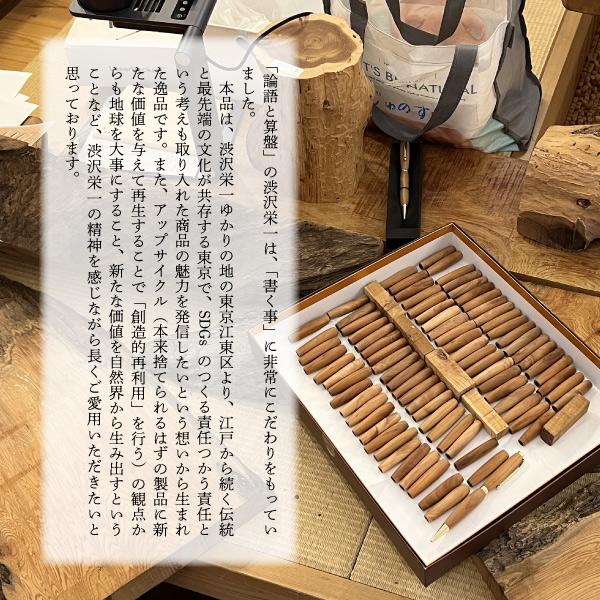 「論語と算盤」の渋沢栄一は、「書く事」に非常にこだわりをもってい
ました。
本品は、渋沢栄一ゆかりの地の東京江東区より、江戸から続く伝統
と最先端の文化が共存する東京で、SDGs のつくる責任つかう責任と
いう考えも取り入れた商品の魅力を発信したいという想いから生まれ
た逸品です。また、アップサイクル（本来捨てられるはずの製品に新
たな価値を与えて再生することで「創造的再利用」を行う）の観点か
らも地球を大事にすること、新たな価値を自然界から生み出すという
ことなど、渋沢栄一の精神を感じながら長くご愛用いただきたいと
思っております。
NATURAL